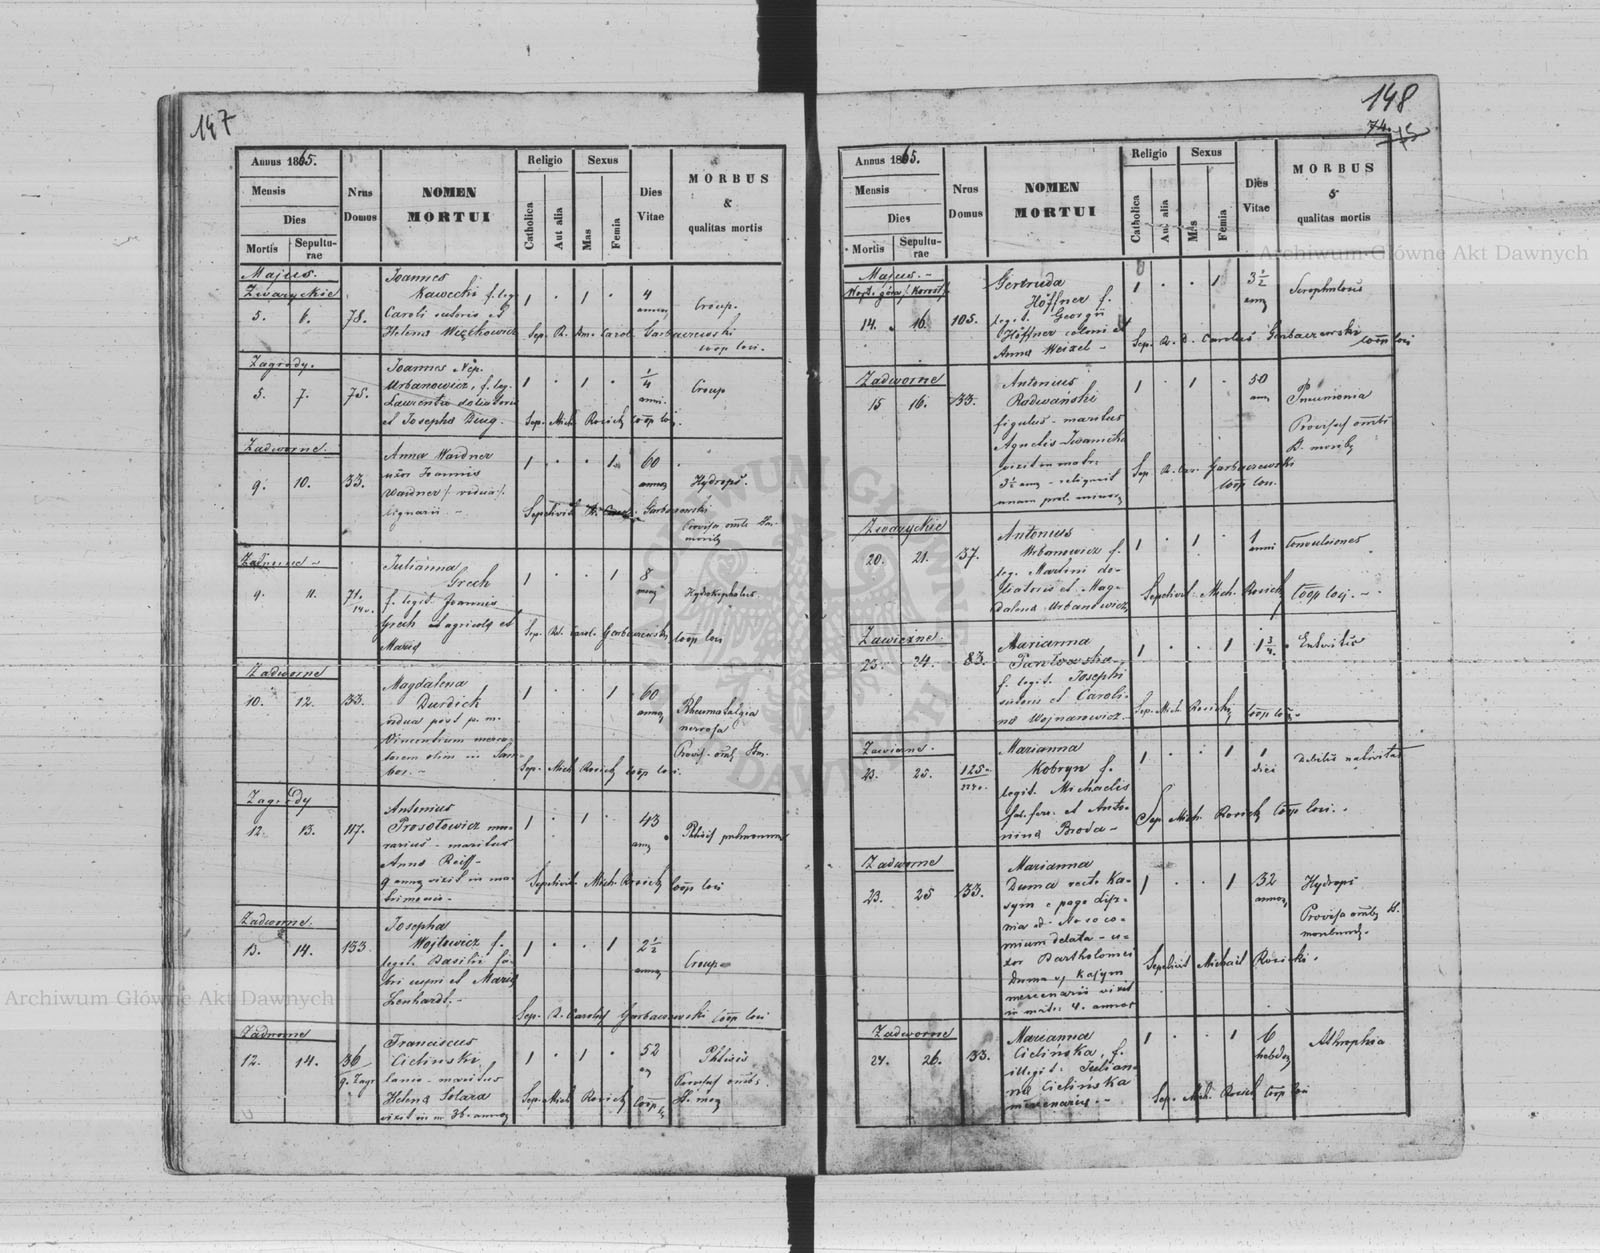 147
Annus 1865.
Mensis
Dies
Mortis
Sepulturae
Nrus Domus
NOMEN
MORTUI
Religio
Catholica
Aut alia
Sexus
Mas
Femia
Dies
Vitae
MORBUS
&
qualitas mortis
Majus.
Zwaryckie
5. 6. 78.
Joannes
Kawecki f. leg.
Caroli sutoris et
Helena Więckowicz
1 . 1 .
4
annor
Croup.
Sep. R. Carol. Garbaczewski
coop loci.
Zagrody.
5. 7. 75.
Joannes Nep.
Urbanowicz, f. leg.
Laurentii doliatoris
et Josepha Zeug.
1 . 1 .
1/4
anni.
Croup
Sep. Mich Rosicki coop loci.
Zadworne.
9. 10. 33.
Anna Wardner
Joannis
Wardner /: vidua :/
lignarii. -
1 . . 1
60
annor
Hydrops.
Sepelivit R. Carol. Garbaczewski
Provisa
9. 11. 71.
Julianna
Grech
f. legit. Joannis
Grech agricola et
Maria
1 . . 1
8
Hydrokephalus.
Sep. R. Carol. Garbaczewski coop loci
Zadworne
10. 12. 33.
Magdalena
Durdick
vidua post p. m.
Vincentium merca-
torem olim in Sam-
bor. -
1 . . 1
60
annor
Rheumatalgia
nervosa
Sep. Mich Rosicki coop loci.
Zagrody
12. 13. 117.
Antonius
Prosolowicz mu-
rarius - maritus
Anna Reiff -
9 annor vixit in ma-
trimonio -
1 . 1 .
43
Phtisis pulmonum
Sepelivit Mich. Rosicki coop loci
Zadworne.
13. 14. 133
Josepha
Wojtowicz f.
legit. Basilii fa-
bri cupri et Maria
Lenhardt. -
1 . . 1
2 1/2
annor
Croup
Sep. R. Carolus Garbaczewski coop loci
Zadworne
12. 14. 36
Franciscus
Cieliński
lanio - maritus
Helena Solara
vixit in m 36. annor
1 . 1 .
52
Phtisis
Sep. Mich Rosicki coop
148
74.
Annus 1865.
Mensis
Dies
Mortis
Sepulturae
Nrus
Domus
NOMEN
MORTUI
Religio
Catholica
Aut alia
Sexus
Mas
Femia
Dies
Vitae
MORBUS
&
qualitas mortis
Majus. -
14. 16. 105.
Gertruda
Höffner f.
legit. Georgii
Höffner coloni et
Anna Weixel -
1 . . 1
3 1/2
annor
Scrophulosis
Sep. R. D. Carolus Garbaczewski coop loci
Zadworne
15 16. 33.
Antonius
Radwański
figulus - maritus
Agnetis Iwanicka
vixit in matr:
3 1/2 ann - reliquit
unam prol. minor
1 . 1 .
50
Pneumonia
Sep. R. Car. Garbaczewski
coop loci.
Zwaryckie
20. 21. 37.
Antonius
Urbanowicz f.
leg. Martini do-
liatoris et Mag-
dalena Urbanowicz
1 . 1 .
1
anni
Convulsiones
Sepelivit Mich. Rosicki coop loci. -
23. 24. 83.
Marianna
Pawłowska -
f. legit. Josephi
sutoris et Caroli-
na Wojnarowicz -
1 . . 1
1 3/4.
Enteritis
Sep. Mich Rosicki coop loci -
23. 25. 125
Marianna
Kobryn f.
legit. Michaelis
fab. ferr. et Anto-
nina Broda -
1 . . 1
1
diei
Debilis nativitas
Sep. Mich. Rosicki coop loci.
Zadworne
23. 25 33.
Marianna
Duma recte Ka-
sym e pago
ad Nosoco-
mium delata - u-
xor Bartholomei
Duma v. Kasym
mercenarii vixit
in matr: 4. annos
1 . . 1
32
annor
Hydrops
Sepelivit Michael Rosicki.
Zadworne
24. 26. 33.
Marianna
Cielińska, f.
illegit. Julian-
na Cielińska
mercenaria. -
1 . . 1
6
hebdo
Athrophia
Sep. Mich. Rosicki coop loci
ARCHIWUM GŁÓWNE AKT DAWNYCH
Archiwum Główne Akt Dawnych
Archiwum Główne Akt Dawnych